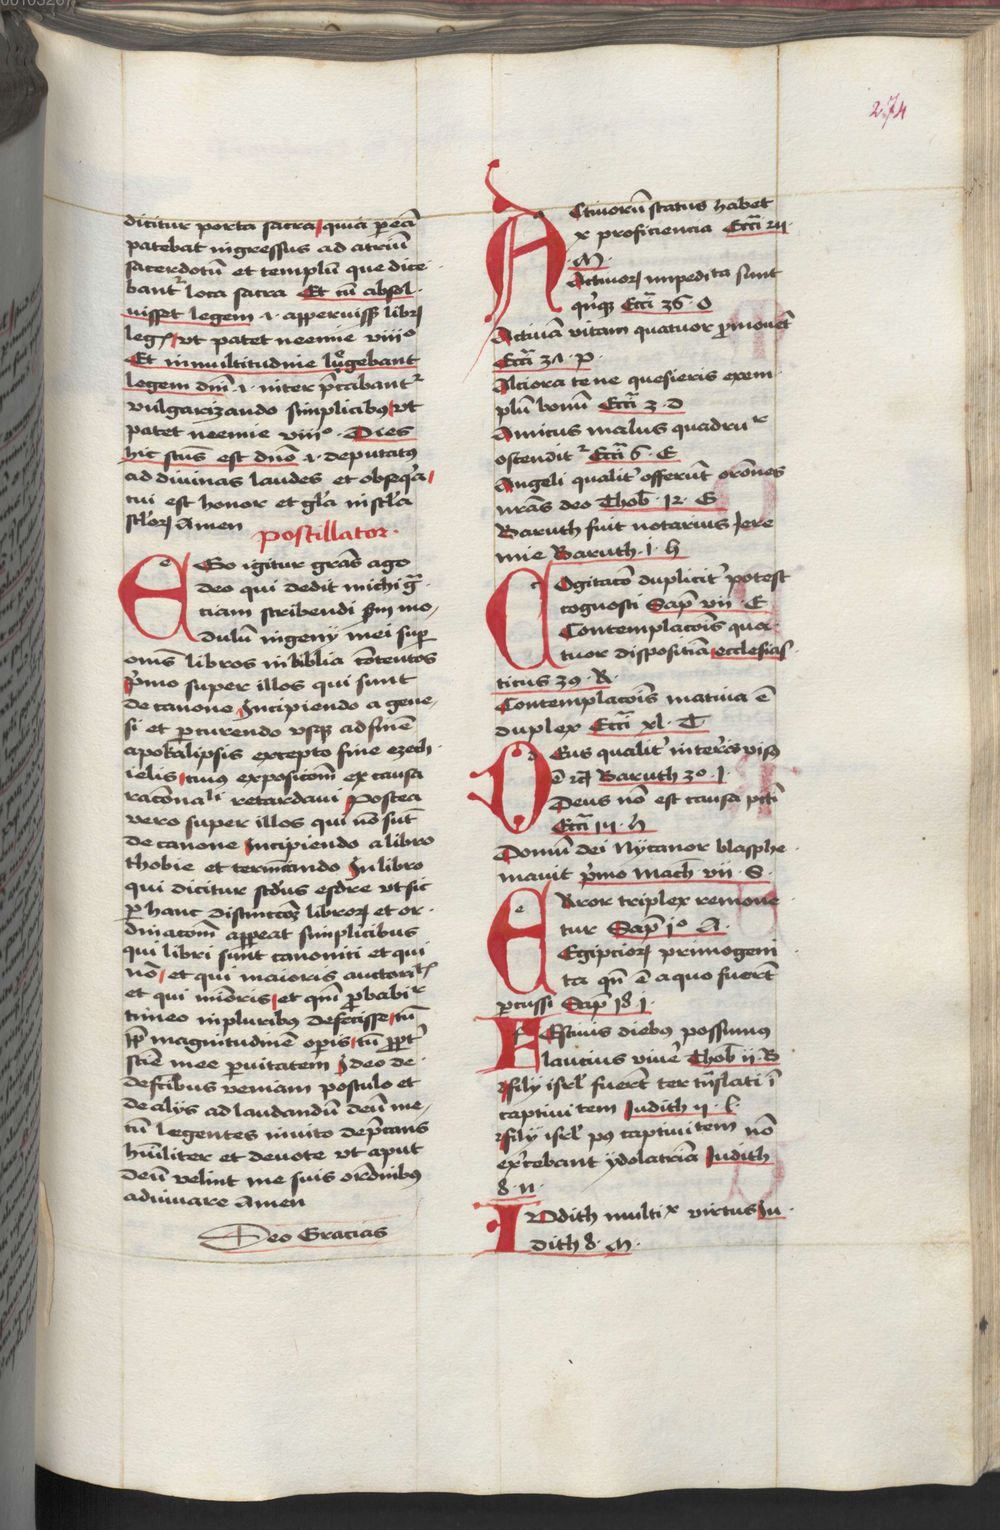 274
dicitur porta sacra quia p eā
patebat ingressus ad atriū
sacerdotū et templū que dice
bantr loca sacra Et cū absol
uisset legem .i. apperuissꝫ librū
legꝭ vt patet neemie viiio
Et in multitudine lugebant
legem dnī .i. inter p̄tabantr
vulgarizando simplicibꝯ vt
patet neemie viiio . Dies
hic sctūs est dno .i. deputatꝯ
ad diuinas laudes et obseq̄a
cui est honor et glā in sclā
sclōꝝ Amen
Postillator
Ego igitur gras̄ ago
deo qui dedit michi grā
ciam scribendi scdm mo
dulum ingenij mei sup
omēs libros in biblia cōtentos
p̄mo super illos qui sunt
de canone Incipiendo a gene
si et pcurendo vsqꝫ ad finē
apokalipsis excepto fine ezech
ielis cuiꝯ exposicōm ex causa
racōnali retardaui Postea
vero super illos qui nō sūt
de canone Incipiendo a libro
thobie et terminando In libro
qui dicitur scdus esdre vt sic
p hanc distinccōꝫ libroꝝ et or
dinacōm appeat simplicibus
qui libri sunt canonici et qui
nō et qui maioris auctoritꝭ
et qui minoris et qm̄ pbabir
timeo in pluribꝯ defecisse tū
ppt̄ magnitudinē opis tū ppt̄
sciē mee puitatem Ideo de
defcibus veniam postulo et
de alijs ad laudandū deū me
cū legentes inuito dep̄cans
hūiliter et deuote vt aput
deū velint me suis orōnibꝯ
adiuuare Amen
Deo Gracias
Actiuorū status habet
x proficiencia Eccī 24
. M .
Actiuoꝝ impedita sunt
qn̄qꝫ Eccī 36 . O
Actiuā vitam quatuor pmouēt
Eccī 31 . P .
Alciora te ne quesieris exem
plū bonū Eccī 3 . D
Amicus malus quadrur
ostendit r Eccī 6 . E
Angeli qualit̄ offerūt orōnes
nrās deo Thob 12 . G
Baruch fuit notarius Jere
mie Baruch . i . h
Cogitacō duplicit̄ potest
cognosci Sap vii . E
Contemplacōis qua
tuor disposicia ecclesias
ticus 39 . A .
Contemplacōis matiua ē
duplex Eccī xl . T
Deus qualit̄ in terris visꝯ
ē Baruch 3o . I
Deus nō est causa pcti
Eccī 14 . h
Domū dei Nycanor blasphe
mauit p̄mo Mach vii . S .
Error triplex remoue
tur Sap io A .
Egipcioꝝ primogeni
ta qn̄ ē a quo fuerūt
pcussi Sap 18 . I .
Festiuis diebꝯ possumꝯ
laucius viuē Thob ii . B
Filij isrl̄ fuerūt ter trāslati ī
captiuitem Judith ii . l .
Filij isrl̄ pꝯ captiuitem nō
exꝰcebant ydolatriam Judith
8 . n .
Iudith multix virtus Ju
dith 8 . M .